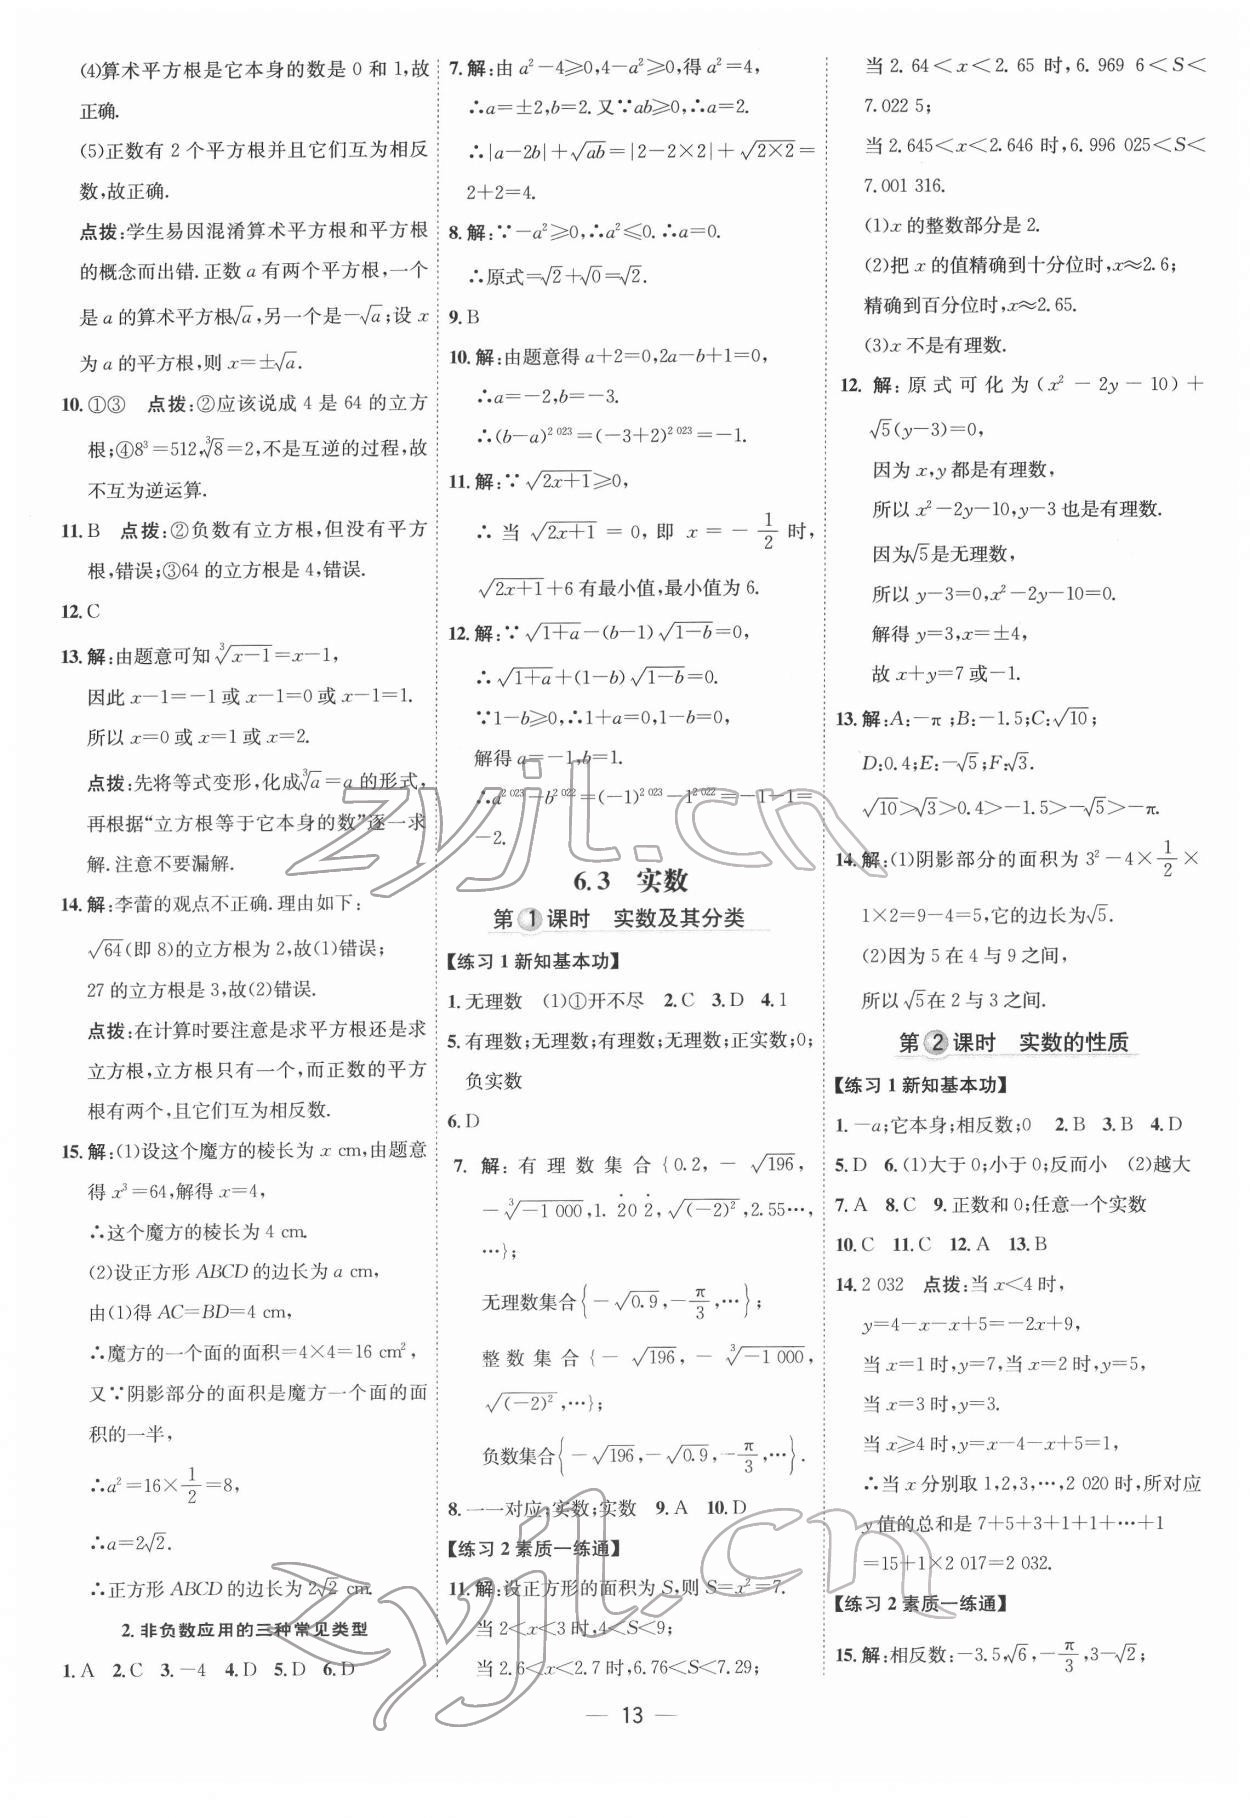 (4)算术平方根是它本身的数是 0 和 1,故
正确.
(5)正数有 2 个平方根并且它们互为相反
数,故正确.
点拨:学生易因混淆算术平方根和平方根
的概念而出错.正数 a 有两个平方根,一个
是 a 的算术平方根√a,另一个是-√a;设 x
为 a 的平方根,则 x=±√a.
10.①③ 点拨:②应该说成 4 是 64 的立方
根;④8³=512,∛8=2,不是互逆的过程,故
不互为逆运算.
11.B 点拨:②负数有立方根,但没有平方
根,错误;③64 的立方根是 4,错误.
12.C
13.解:由题意可知 ∛(x-1)=x-1,
因此 x-1=-1 或 x-1=0 或 x-1=1.
所以 x=0 或 x=1 或 x=2.
点拨:先将等式变形,化成∛a=a 的形式,
再根据“立方根等于它本身的数”逐一求
解.注意不要漏解.
14.解:李蕾的观点不正确.理由如下:
√64(即 8)的立方根为 2,故(1)错误;
27 的立方根是 3,故(2)错误.
点拨:在计算时要注意是求平方根还是求
立方根,立方根只有一个,而正数的平方
根有两个,且它们互为相反数.
15.解:(1)设这个魔方的棱长为 x cm,由题意
得 x³=64,解得 x=4,
∴这个魔方的棱长为 4 cm.
(2)设正方形 ABCD 的边长为 a cm,
由(1)得 AC=BD=4 cm,
∴魔方的一个面的面积=4×4=16 cm²,
又∵阴影部分的面积是魔方一个面的面
积的一半,
∴a²=16×1/2=8,
∴a=2√2.
∴正方形 ABCD 的边长为 2√2 cm.
2.非负数应用的三种常见类型
1.A 2.C 3.-4 4.D 5.D 6.D
7.解:由 a²-4≥0,4-a²≥0,得 a²=4,
∴a=±2,b=2.又∵ab≥0,∴a=2.
∴|a-2b|+√ab=|2-2×2|+√(2×2)=
2+2=4.
8.解:∵-a²≥0,∴a²≤0.∴a=0.
∴原式=√2+√0=√2.
9.B
10.解:由题意得 a+2=0,2a-b+1=0,
∴a=-2,b=-3.
∴(b-a)²⁰²³=(-3+2)²⁰²³=-1.
11.解:∵√(2x+1)≥0,
∴当√(2x+1)=0,即 x=-1/2 时,
√(2x+1)+6 有最小值,最小值为 6.
12.解:∵√(1+a)-(b-1)√(1-b)=0,
∴√(1+a)+(1-b)√(1-b)=0.
∵1-b≥0,∴1+a=0,1-b=0,
解得 a=-1,b=1.
∴a²⁰²³-b²⁰²²=(-1)²⁰²³-1²⁰²²=-1-1=
-2.
6.3 实数
第1课时 实数及其分类
【练习 1 新知基本功】
1.无理数 (1)①开不尽 2.C 3.D 4.1
5.有理数;无理数;有理数;无理数;正实数;0;
负实数
6.D
7.解:有理数集合{0.2,-√196,
-∛(-1 000),1.2̇02̇,√(-2)²,2.55…,
…};
无理数集合{-√0.9,-π/3,…};
整数集合{-√196,-∛(-1 000),
√(-2)²,…};
负数集合{-√196,-√0.9,-π/3,…}.
8.一一对应;实数;实数 9.A 10.D
【练习 2 素质一练通】
11.解:设正方形的面积为 S,则 S=x²=7.
当 2<x<3 时,4<S<9;
当 2.6<x<2.7 时,6.76<S<7.29;
当 2.64<x<2.65 时,6.969 6<S<
7.022 5;
当 2.645<x<2.646 时,6.996 025<S<
7.001 316.
(1)x 的整数部分是 2.
(2)把 x 的值精确到十分位时,x≈2.6;
精确到百分位时,x≈2.65.
(3)x 不是有理数.
12.解:原式可化为(x²-2y-10)+
√5(y-3)=0,
因为 x,y 都是有理数,
所以 x²-2y-10,y-3 也是有理数.
因为√5是无理数,
所以 y-3=0,x²-2y-10=0.
解得 y=3,x=±4,
故 x+y=7 或-1.
13.解:A:-π;B:-1.5;C:√10;
D:0.4;E:-√5;F:√3.
√10>√3>0.4>-1.5>-√5>-π.
14.解:(1)阴影部分的面积为 3²-4×1/2×
1×2=9-4=5,它的边长为√5.
(2)因为 5 在 4 与 9 之间,
所以√5在 2 与 3 之间.
第2课时 实数的性质
【练习 1 新知基本功】
1.-a;它本身;相反数;0 2.B 3.B 4.D
5.D 6.(1)大于 0;小于 0;反而小 (2)越大
7.A 8.C 9.正数和 0;任意一个实数
10.C 11.C 12.A 13.B
14.2 032 点拨:当 x<4 时,
y=4-x-x+5=-2x+9,
当 x=1 时,y=7,当 x=2 时,y=5,
当 x=3 时,y=3.
当 x≥4 时,y=x-4-x+5=1,
∴当 x 分别取 1,2,3,…,2 020 时,所对应
y 值的总和是 7+5+3+1+1+…+1
=15+1×2 017=2 032.
【练习 2 素质一练通】
15.解:相反数:-3.5,√6,-π/3,3-√2;
— 13 —
zyjl.cn
zyjl.cn